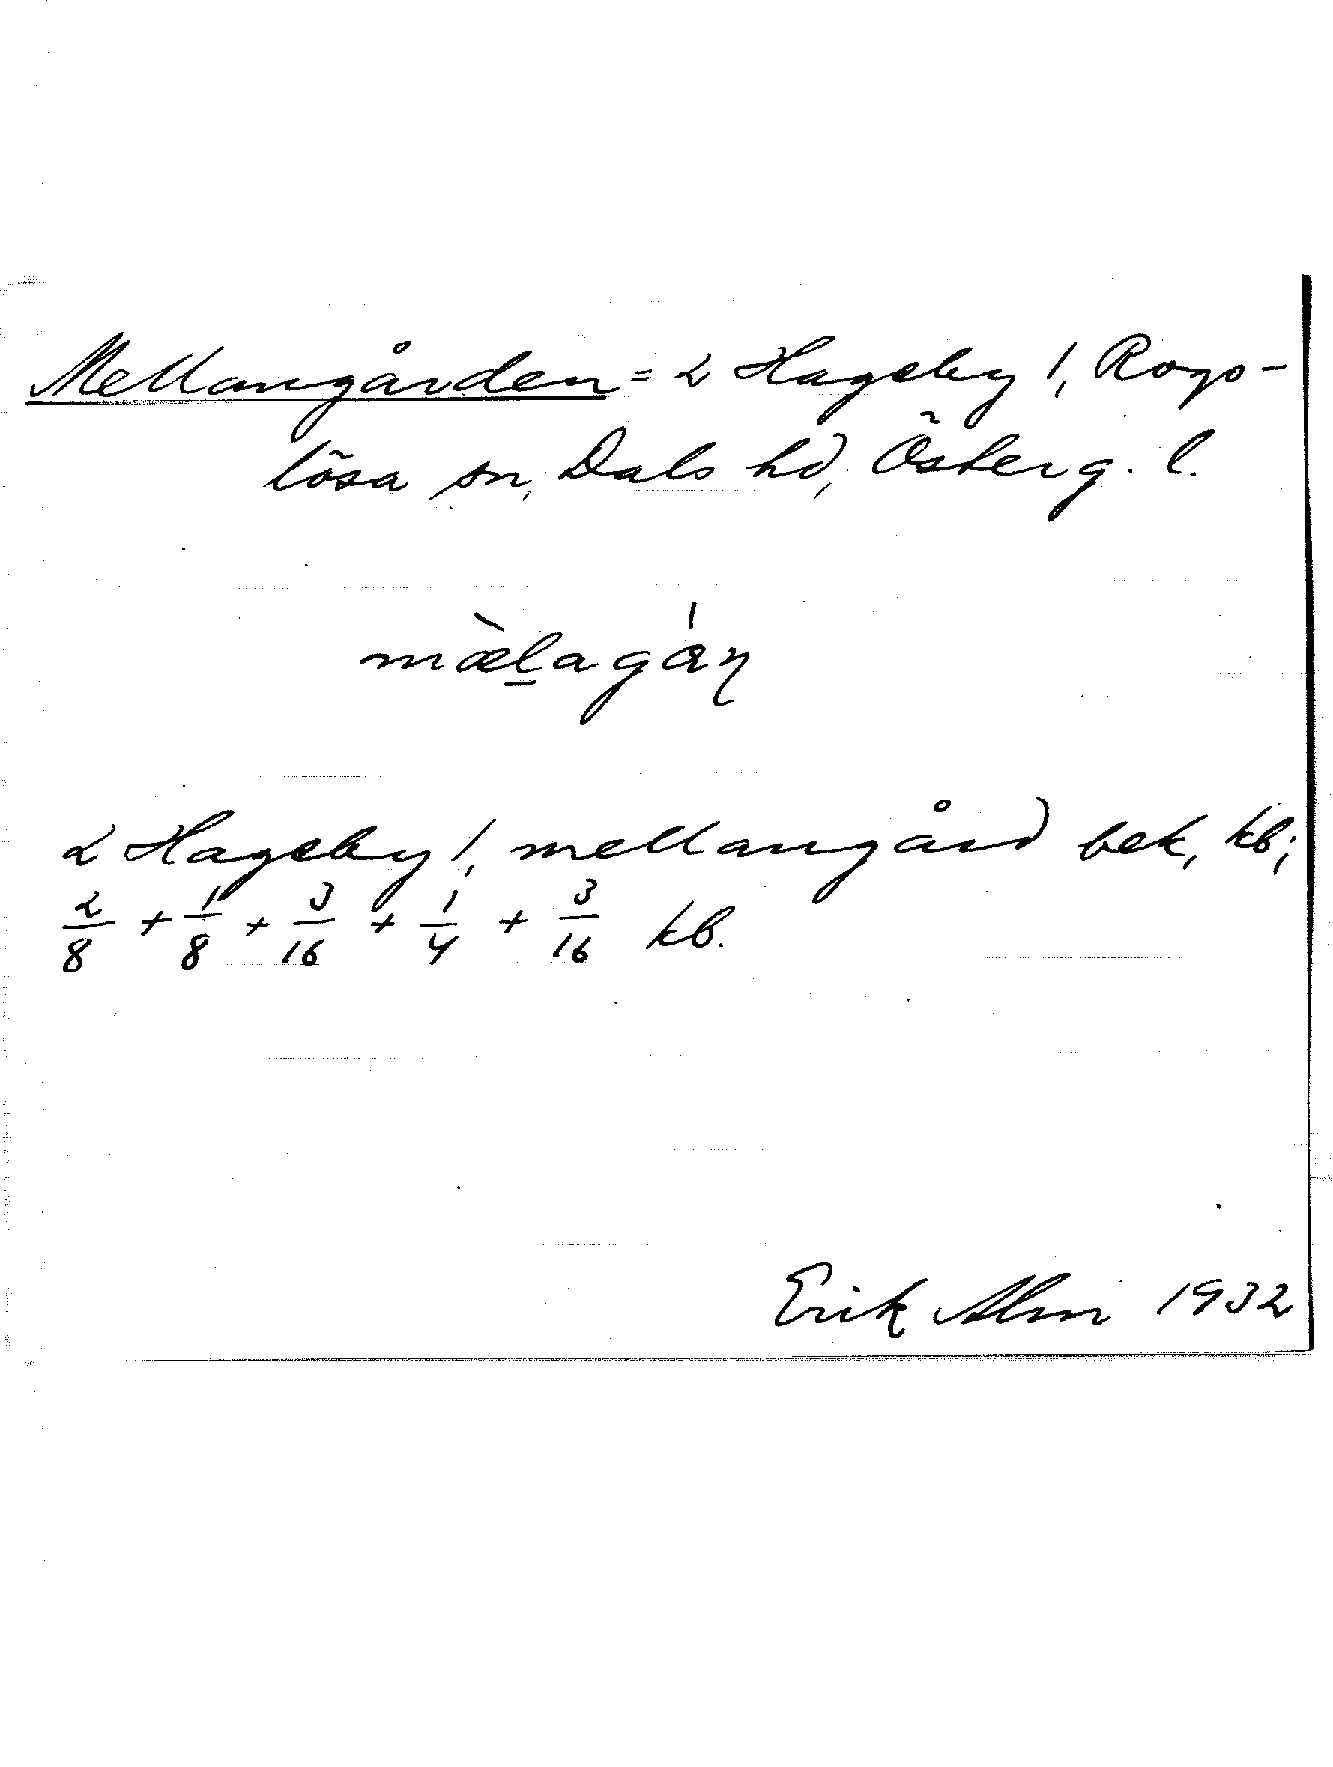 Mellangården = 2 Hageby 1, Rogs-
lösa sn, Dals hd, Österg. l.
mæ̀l̠agá̊ɳ
2 Hageby 1, mellangård bek, kb;
2/8 + 1/8 + 3/16 + 1/4 + 3/16 kb.
Erik Alm 1932